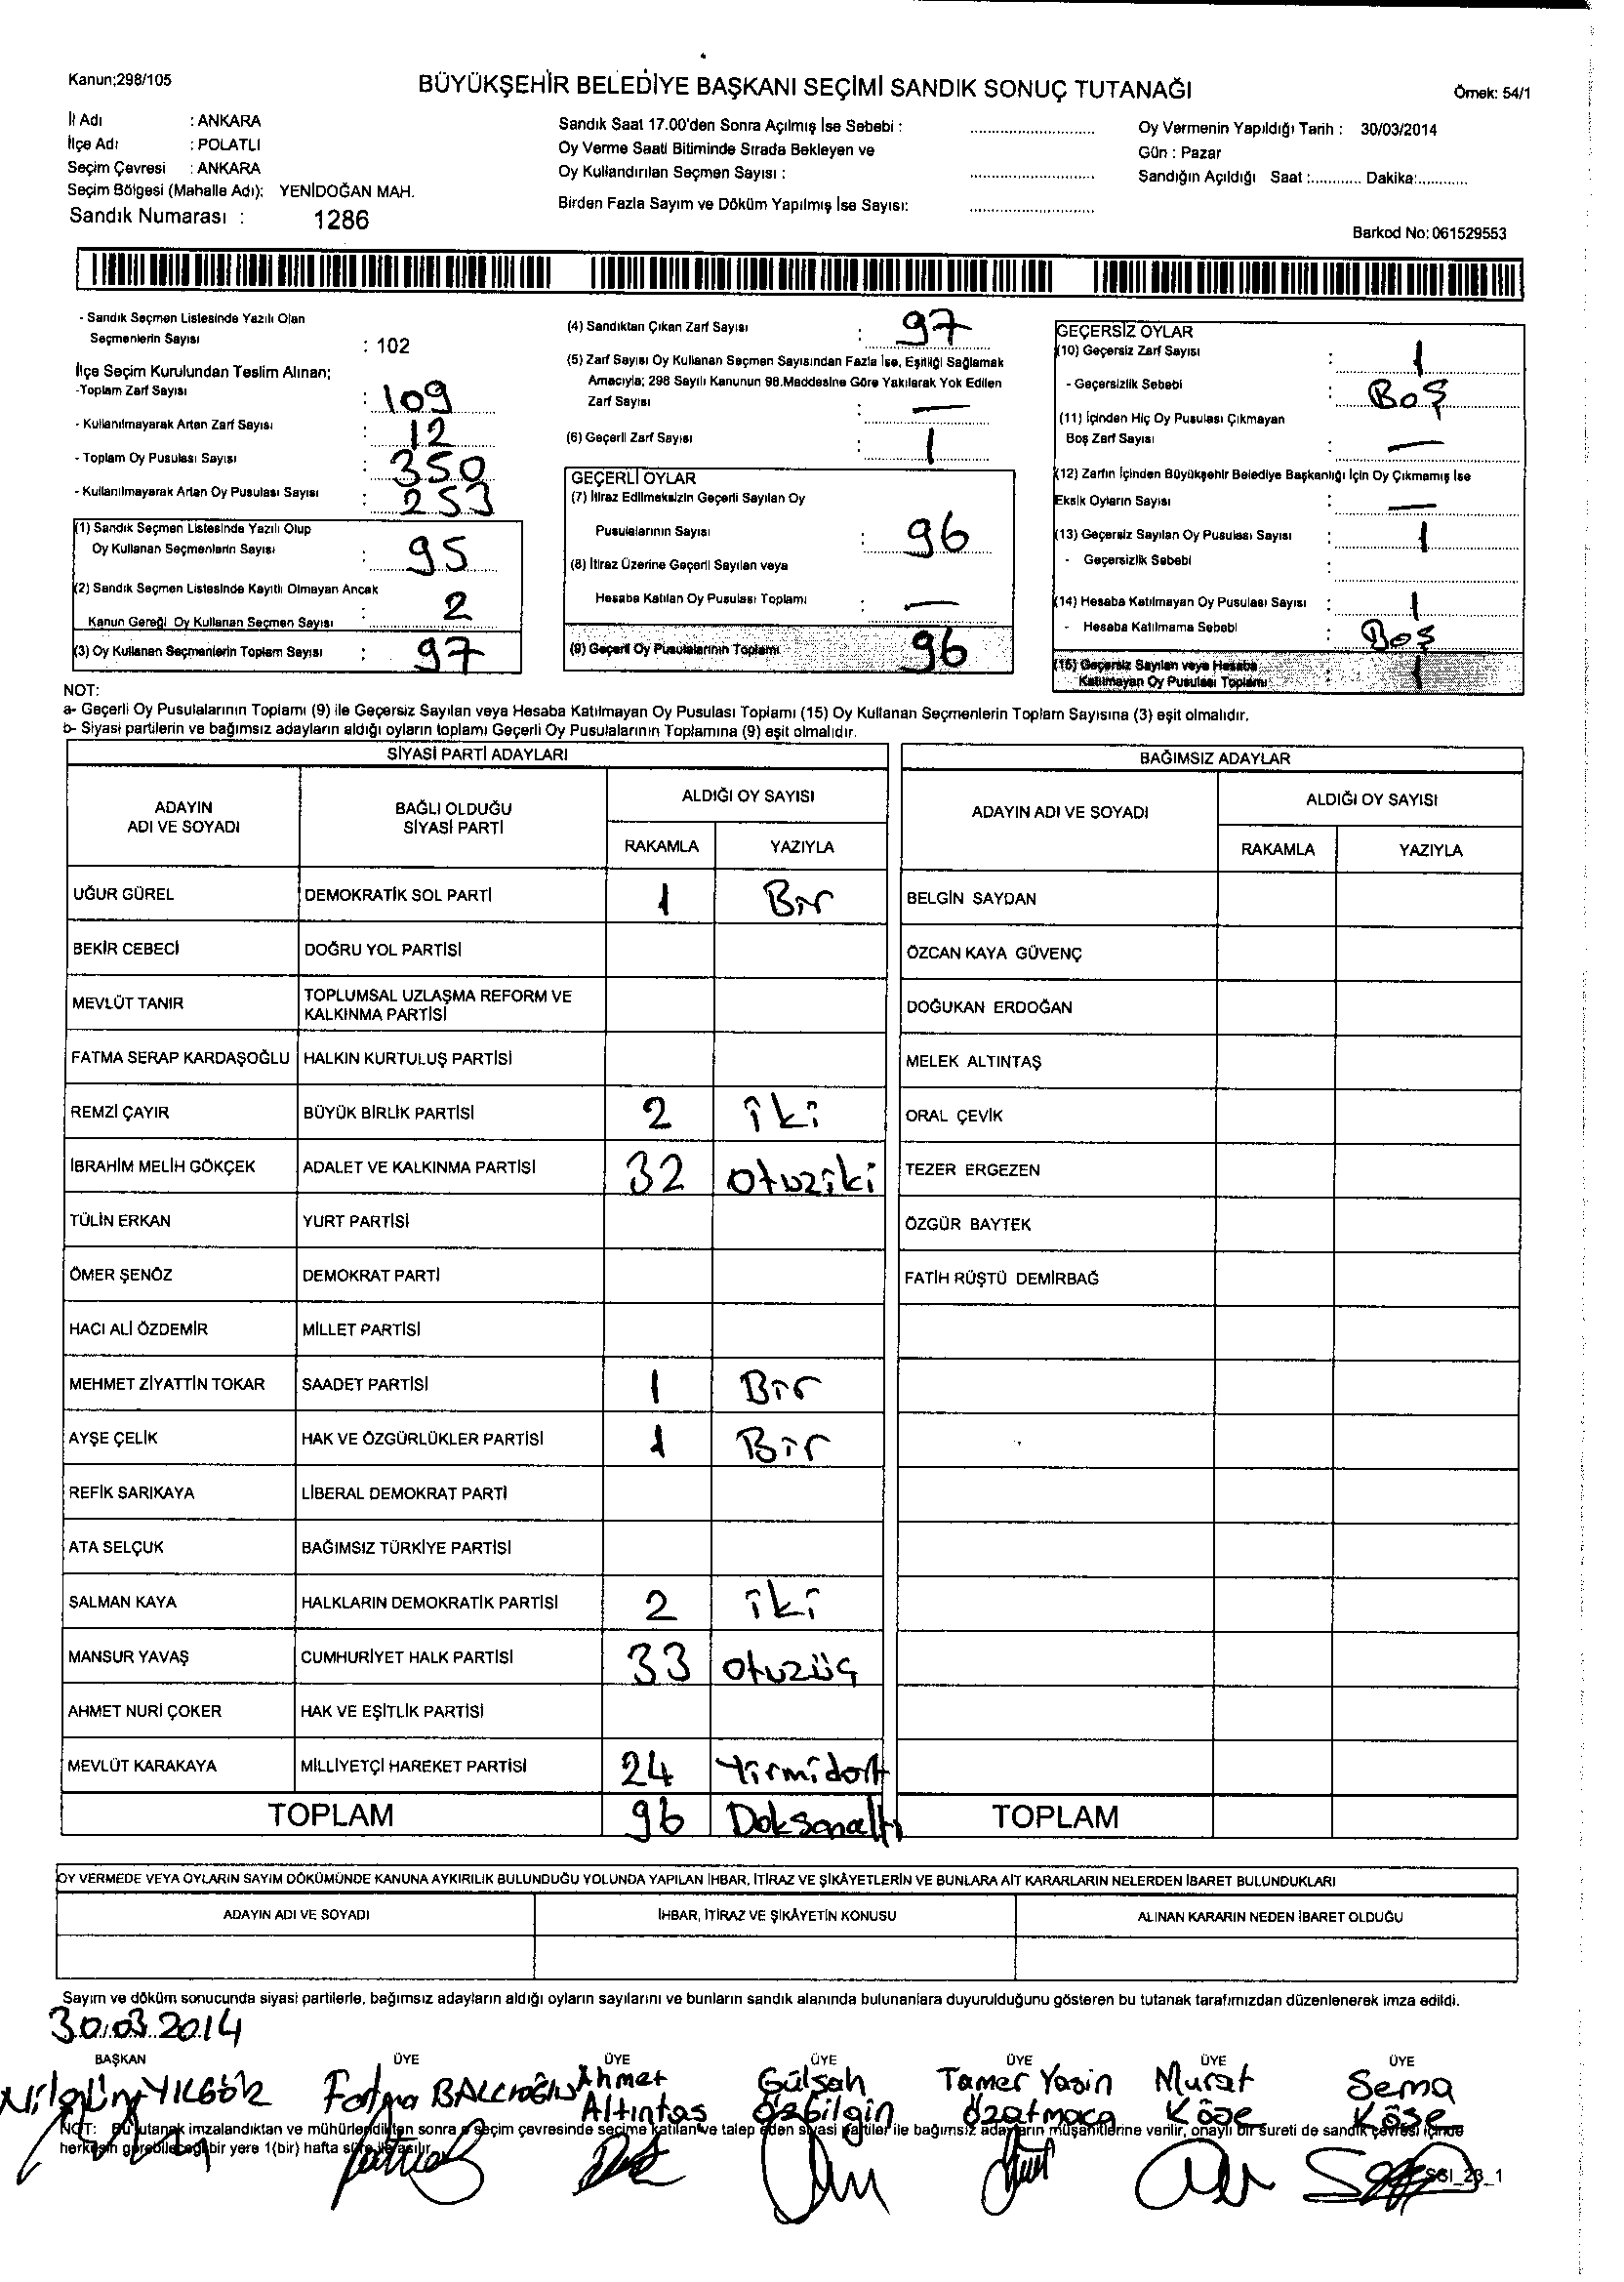 Kanun;298/105
BÜYÜKŞEHİR BELEDİYE BAŞKANI SEÇİMİ SANDIK SONUÇ TUTANAĞI
Örnek: 54/1
İl Adı : ANKARA
İlçe Adı : POLATLI
Seçim Çevresi : ANKARA
Seçim Bölgesi (Mahalle Adı): YENİDOĞAN MAH.
Sandık Numarası : 1286
Sandık Saat 17.00'den Sonra Açılmış İse Sebebi :
Oy Verme Saati Bitiminde Sırada Bekleyen ve
Oy Kullandırılan Seçmen Sayısı :
Birden Fazla Sayım ve Döküm Yapılmış İse Sayısı:
Oy Vermenin Yapıldığı Tarih : 30/03/2014
Gün : Pazar
Sandığın Açıldığı Saat :............ Dakika:............
Barkod No: 061529553
- Sandık Seçmen Listesinde Yazılı Olan
Seçmenlerin Sayısı : 102
İlçe Seçim Kurulundan Teslim Alınan;
-Toplam Zarf Sayısı : 109
- Kullanılmayarak Artan Zarf Sayısı : 12
- Toplam Oy Pusulası Sayısı : 350
- Kullanılmayarak Artan Oy Pusulası Sayısı : 253
(1) Sandık Seçmen Listesinde Yazılı Olup
Oy Kullanan Seçmenlerin Sayısı : 95
(2) Sandık Seçmen Listesinde Kayıtlı Olmayan Ancak
Kanun Gereği Oy Kullanan Seçmen Sayısı : 2
(3) Oy Kullanan Seçmenlerin Toplam Sayısı : 97
(4) Sandıktan Çıkan Zarf Sayısı : 97
(5) Zarf Sayısı Oy Kullanan Seçmen Sayısından Fazla İse, Eşitliği Sağlamak
Amacıyla; 298 Sayılı Kanunun 98.Maddesine Göre Yakılarak Yok Edilen
Zarf Sayısı : —
(6) Geçerli Zarf Sayısı : 1
GEÇERLİ OYLAR
(7) İtiraz Edilmeksizin Geçerli Sayılan Oy
Pusulalarının Sayısı : 96
(8) İtiraz Üzerine Geçerli Sayılan veya
Hesaba Katılan Oy Pusulası Toplamı : —
(9) Geçerli Oy Pusulalarının Toplamı 96
GEÇERSİZ OYLAR
(10) Geçersiz Zarf Sayısı : 1
- Geçersizlik Sebebi : Boş
(11) İçinden Hiç Oy Pusulası Çıkmayan
Boş Zarf Sayısı : —
(12) Zarfın İçinden Büyükşehir Belediye Başkanlığı İçin Oy Çıkmamış İse
Eksik Oyların Sayısı : —
(13) Geçersiz Sayılan Oy Pusulası Sayısı : 1
- Geçersizlik Sebebi :
(14) Hesaba Katılmayan Oy Pusulası Sayısı : 1
- Hesaba Katılmama Sebebi : Boş
(15) Geçersiz Sayılan veya Hesaba
Katılmayan Oy Pusulası Toplamı : 1
NOT:
a- Geçerli Oy Pusulalarının Toplamı (9) ile Geçersiz Sayılan veya Hesaba Katılmayan Oy Pusulası Toplamı (15) Oy Kullanan Seçmenlerin Toplam Sayısına (3) eşit olmalıdır.
b- Siyasi partilerin ve bağımsız adayların aldığı oyların toplamı Geçerli Oy Pusulalarının Toplamına (9) eşit olmalıdır.
SİYASİ PARTİ ADAYLARI
ADAYIN ADI VE SOYADI BAĞLI OLDUĞU SİYASİ PARTİ ALDIĞI OY SAYISI
RAKAMLA YAZIYLA
UĞUR GÜREL DEMOKRATİK SOL PARTİ 1 Bir
BEKİR CEBECİ DOĞRU YOL PARTİSİ
MEVLÜT TANIR TOPLUMSAL UZLAŞMA REFORM VE KALKINMA PARTİSİ
FATMA SERAP KARDAŞOĞLU HALKIN KURTULUŞ PARTİSİ
REMZİ ÇAYIR BÜYÜK BİRLİK PARTİSİ 2 iki
İBRAHİM MELİH GÖKÇEK ADALET VE KALKINMA PARTİSİ 32 otuziki
TÜLİN ERKAN YURT PARTİSİ
ÖMER ŞENÖZ DEMOKRAT PARTİ
HACI ALİ ÖZDEMİR MİLLET PARTİSİ
MEHMET ZİYATTİN TOKAR SAADET PARTİSİ 1 Bir
AYŞE ÇELİK HAK VE ÖZGÜRLÜKLER PARTİSİ 1 Bir
REFİK SARIKAYA LİBERAL DEMOKRAT PARTİ
ATA SELÇUK BAĞIMSIZ TÜRKİYE PARTİSİ
SALMAN KAYA HALKLARIN DEMOKRATİK PARTİSİ 2 iki
MANSUR YAVAŞ CUMHURİYET HALK PARTİSİ 33 otuzüç
AHMET NURİ ÇOKER HAK VE EŞİTLİK PARTİSİ
MEVLÜT KARAKAYA MİLLİYETÇİ HAREKET PARTİSİ 24 Yirmidört
TOPLAM 96 Doksanaltı
BAĞIMSIZ ADAYLAR
ADAYIN ADI VE SOYADI ALDIĞI OY SAYISI
RAKAMLA YAZIYLA
BELGİN SAYDAN
ÖZCAN KAYA GÜVENÇ
DOĞUKAN ERDOĞAN
MELEK ALTINTAŞ
ORAL ÇEVİK
TEZER ERGEZEN
ÖZGÜR BAYTEK
FATİH RÜŞTÜ DEMİRBAĞ
TOPLAM
OY VERMEDE VEYA OYLARIN SAYIM DÖKÜMÜNDE KANUNA AYKIRILIK BULUNDUĞU YOLUNDA YAPILAN İHBAR, İTİRAZ VE ŞİKÂYETLERİN VE BUNLARA AİT KARARLARIN NELERDEN İBARET BULUNDUKLARI
ADAYIN ADI VE SOYADI İHBAR, İTİRAZ VE ŞİKÂYETİN KONUSU ALINAN KARARIN NEDEN İBARET OLDUĞU
Sayım ve döküm sonucunda siyasi partilerle, bağımsız adayların aldığı oyların sayılarını ve bunların sandık alanında bulunanlara duyurulduğunu gösteren bu tutanak tarafımızdan düzenlenerek imza edildi.
30.03.2014
BAŞKAN ÜYE ÜYE ÜYE ÜYE ÜYE ÜYE
Nilgün YILGÖR Fatma BALCIOĞLU Ahmet Altıntaş Gülşah Özbilgin Tamer Yasin Özatmaca Murat Köse Sema Köse
NOT: Bu tutanak imzalandıktan ve mühürlendikten sonra o seçim çevresinde seçime katılan ve talep eden siyasi partiler ile bağımsız adayların müşahitlerine verilir, onaylı bir sureti de sandık çevresi içinde
herkesin görebileceği bir yere 1(bir) hafta süre ile asılır.